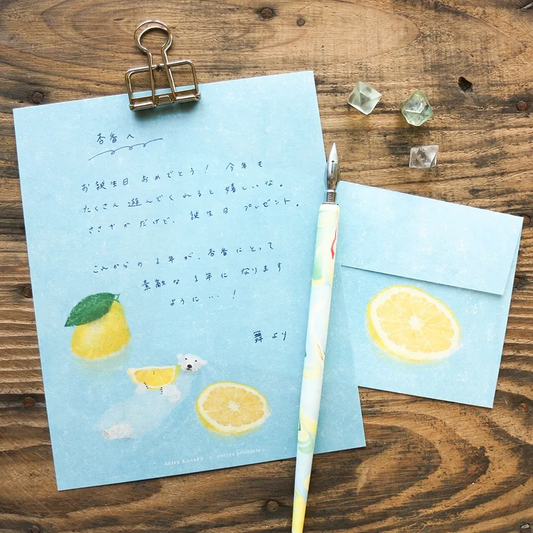 杏香へ
お誕生日おめでとう！ 今年も
たくさん遊んでくれると嬉しいな。
ささやかだけど、誕生日プレゼント。
これからの1年が、杏香にとって
素敵な1年になります
ように…！
舞より